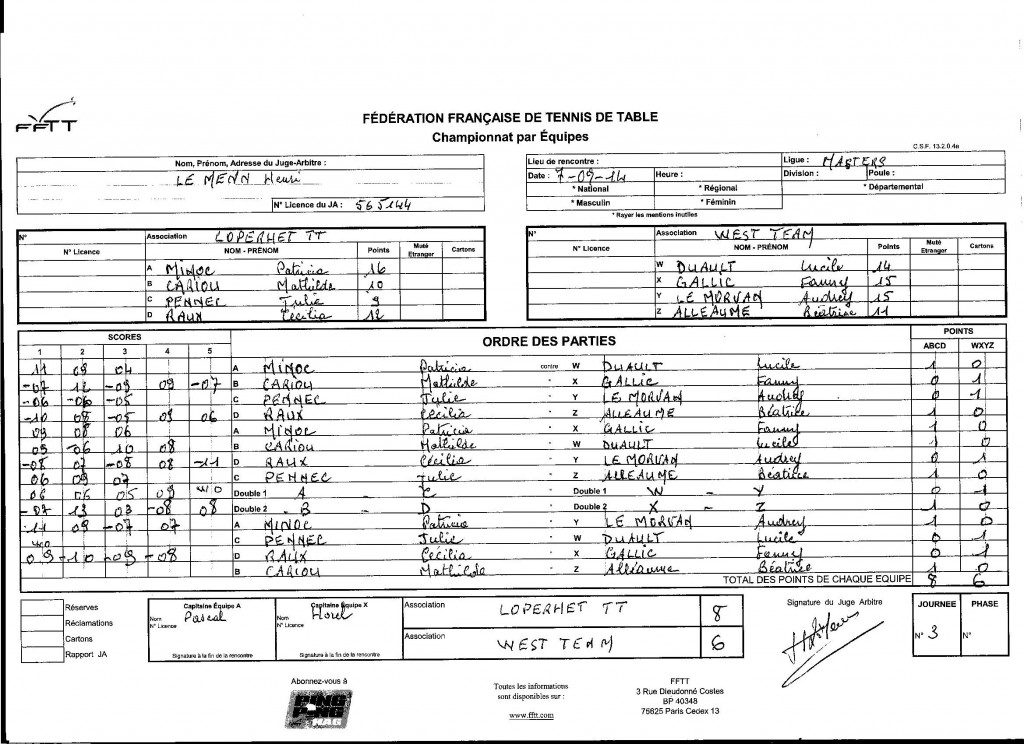 FFTT
FÉDÉRATION FRANÇAISE DE TENNIS DE TABLE
Championnat par Équipes
C.S.F. 13.2.0.4a
Nom, Prénom, Adresse du Juge-Arbitre :
LE MENN Henri
N° Licence du JA : 565144
Lieu de rencontre : Ligue : MASTERS
Date : 7-09-14 Heure : Division : Poule :
* National * Régional * Départemental
* Masculin * Féminin
* Rayer les mentions inutiles
N° Association LOPERHET TT
N° Licence NOM - PRÉNOM Points Muté Etranger Cartons
A MINOC Patricia 16
B CARIOU Mathilde 10
C PENNEC Julie 9
D RAUX Cécilia 12
N° Association WEST TEAM
N° Licence NOM - PRÉNOM Points Muté Etranger Cartons
W DUAULT Lucile 14
X GALLIC Fanny 15
Y LE MORVAN Audrey 15
Z ALLEAUME Béatrice 11
SCORES ORDRE DES PARTIES POINTS
1 2 3 4 5 ABCD WXYZ
11 09 04 A MINOC Patricia contre W DUAULT Lucile 1 0
-07 12 -09 09 -07 B CARIOU Mathilde " X GALLIC Fanny 0 1
-06 -06 -05 C PENNEC Julie " Y LE MORVAN Audrey 0 1
-10 08 -05 09 06 D RAUX Cécilia " Z ALLEAUME Béatrice 1 0
09 08 06 A MINOC Patricia " X GALLIC Fanny 1 0
05 -06 10 08 B CARIOU Mathilde " W DUAULT Lucile 1 0
-08 07 -08 08 -11 D RAUX Cécilia " Y LE MORVAN Audrey 0 1
06 09 07 C PENNEC Julie " Z ALLEAUME Béatrice 1 0
06 06 05 09 WO Double 1 A - C Double 1 W - Y 0 1
-07 13 03 -08 08 Double 2 - B - D Double 2 X - Z 1 0
-11 09 -07 07 A MINOC Patricia " Y LE MORVAN Audrey 1 0
WO C PENNEC Julie " W DUAULT Lucile 0 1
09 -10 -09 -08 D RAUX Cécilia " X GALLIC Fanny 0 1
B CARIOU Mathilde " Z Alléaume Béatrice 1 0
TOTAL DES POINTS DE CHAQUE EQUIPE 8 6
Réserves
Réclamations
Cartons
Rapport JA
Capitaine Équipe A
Nom Pascal
N° Licence
Signature à la fin de la rencontre
Capitaine Équipe X
Nom
N° Licence
Signature à la fin de la rencontre
Association LOPERHET TT 8
Association WEST TEAM 6
Signature du Juge Arbitre
JOURNEE PHASE
N° 3 N°
Abonnez-vous à
PING PONG MAG
Toutes les informations
sont disponibles sur :
www.fftt.com
FFTT
3 Rue Dieudonné Costes
BP 40348
75625 Paris Cedex 13